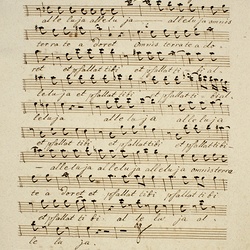 alleluja alleluja alleluja omnis
terra te a doret omnis terra te a do-
ret et psallat tibi et psallat ti bi al
leluja et psallat tibi et psallat tibi al
leluja alleluja alleluja
et psallat tibi et psallat tibi et psallat tibi
alleluja alleluja alleluja omnis terra
te a doret et psallat tibi psallat tibi
et psallat ti bi. al le lu ja al-
le lu ja.